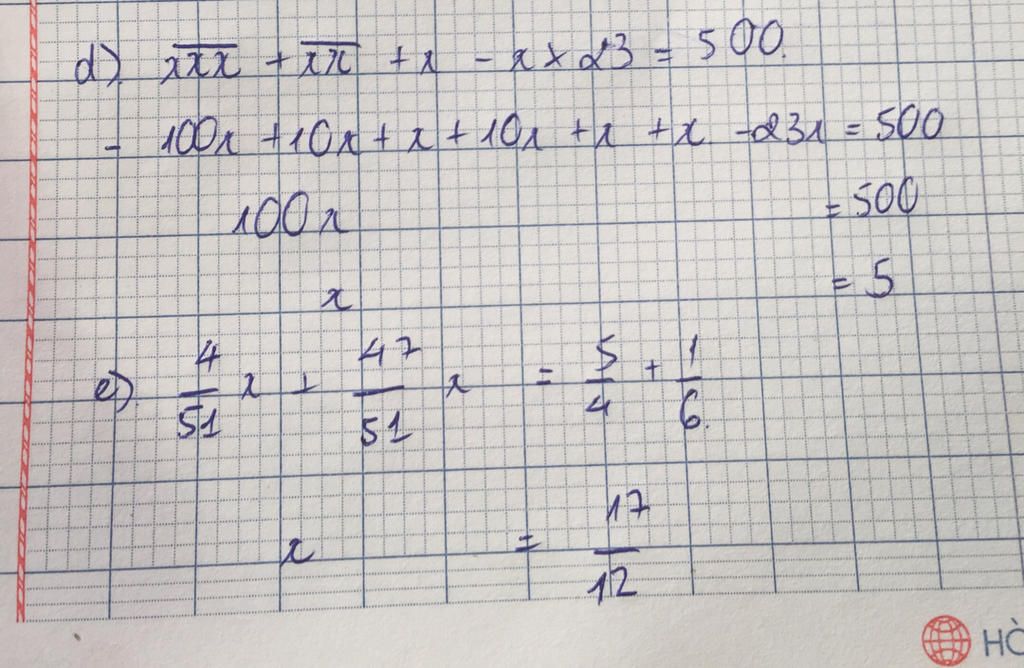 d) x̅x̅x̅ + x̅x̅ + x - x × 23 = 500.
- 100x + 10x + x + 10x + x + x - 23x = 500
100x = 500
x = 5
e) 4/51 x + 47/51 x = 5/4 + 1/6.
x = 17/12
HÒ